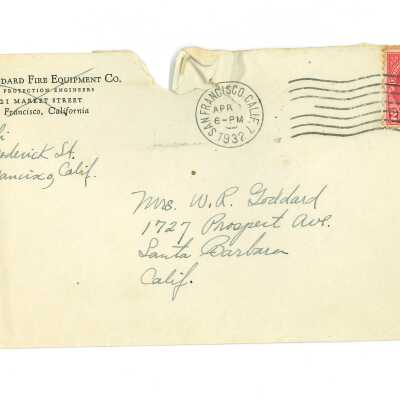 DARD FIRE EQUIPMENT CO.
PROTECTION ENGINEERS
21 MARKET STREET
Francisco, California
ederick St.
ancisco, Calif.
SAN FRANCISCO, CALIF.
APR
6-PM
1932
Mrs. W. R. Goddard
1727 Prospect Ave.
Santa Barbara
Calif.